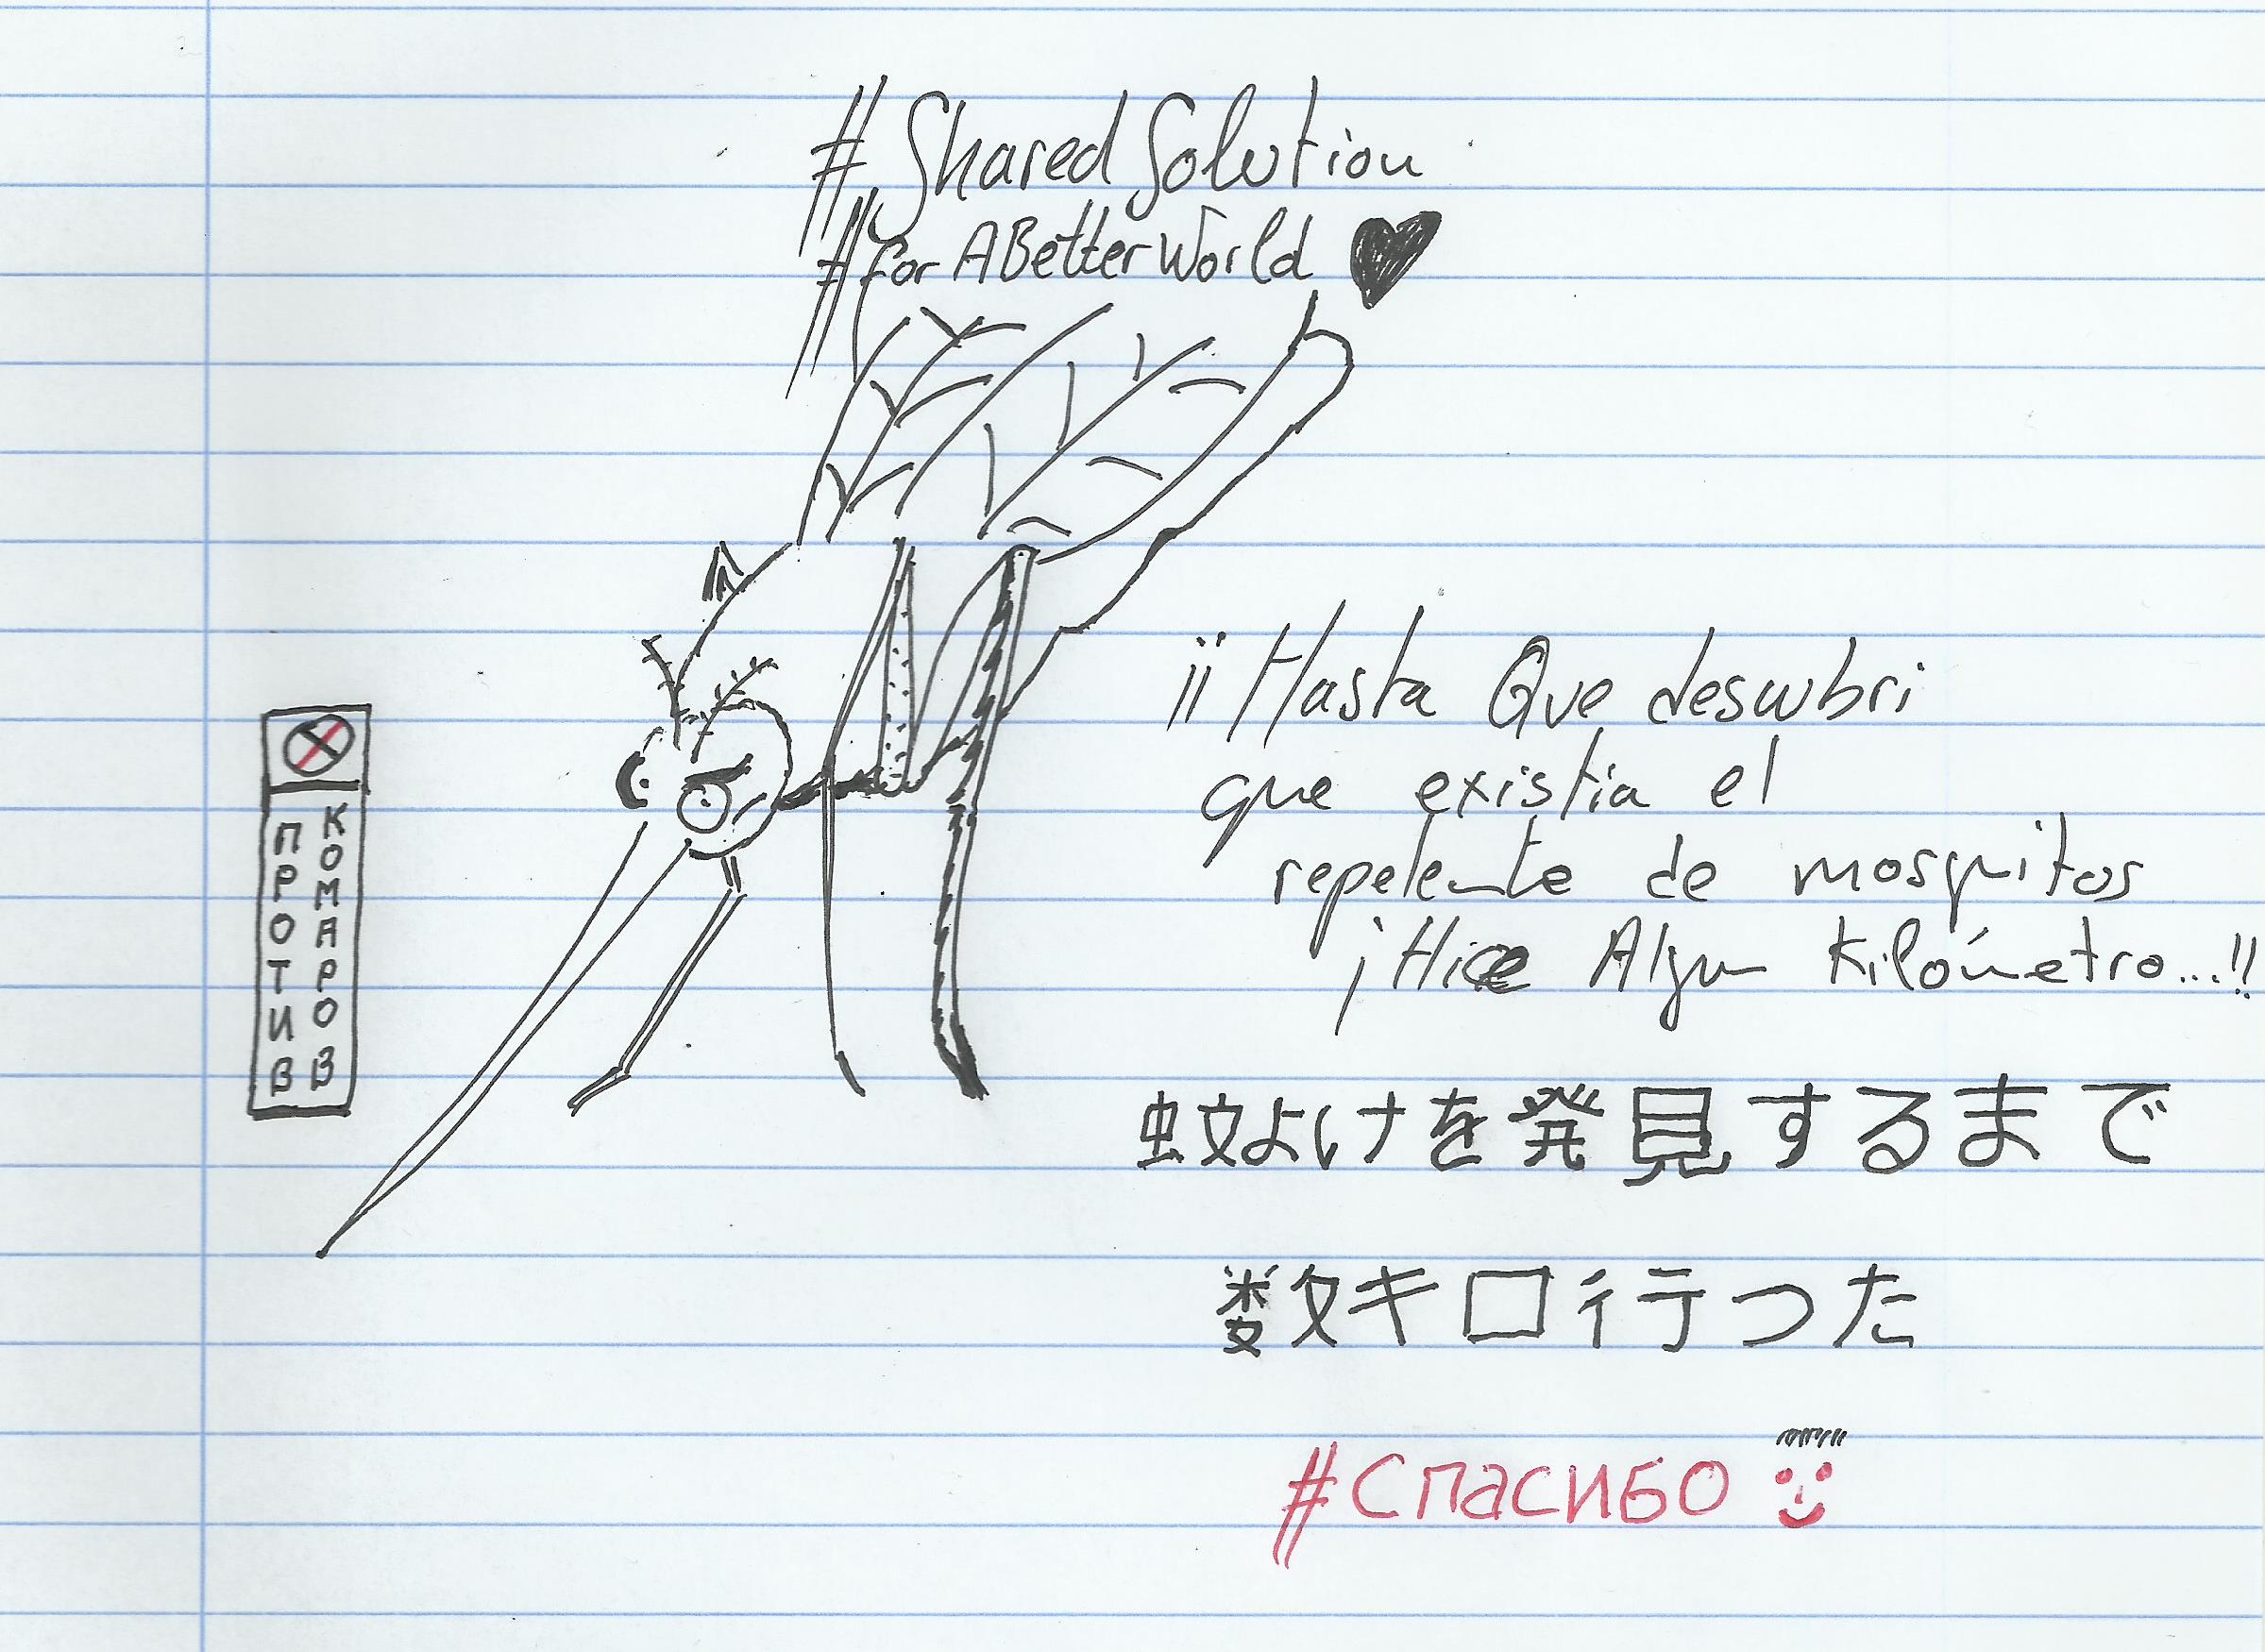 #SharedSolution
#forABetterWorld
¡¡Hasta Que descubri
que existia el
repelente de mosquitos
¡Hice Algun Kilómetro...!!
ПРОТИВ
КОМАРОВ
蚊よけを発見するまで
数キロ行った
#Спасибо